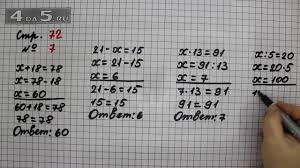 4DA5.RU
Стр. 72
№ 7
x+18=78
x=78-18
x=60
60+18=78
78=78
Ответ: 60
21-x=15
x=21-15
x=6
21-6=15
15=15
Ответ: 6
x·13=91
x=91:13
x=7
7·13=91
91=91
Ответ: 7
x:5=20
x=20·5
x=100
1